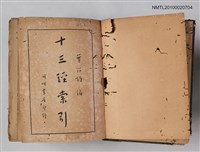 NMTL20100020704
葉紹鈞編
十三經索引
開明書店發行